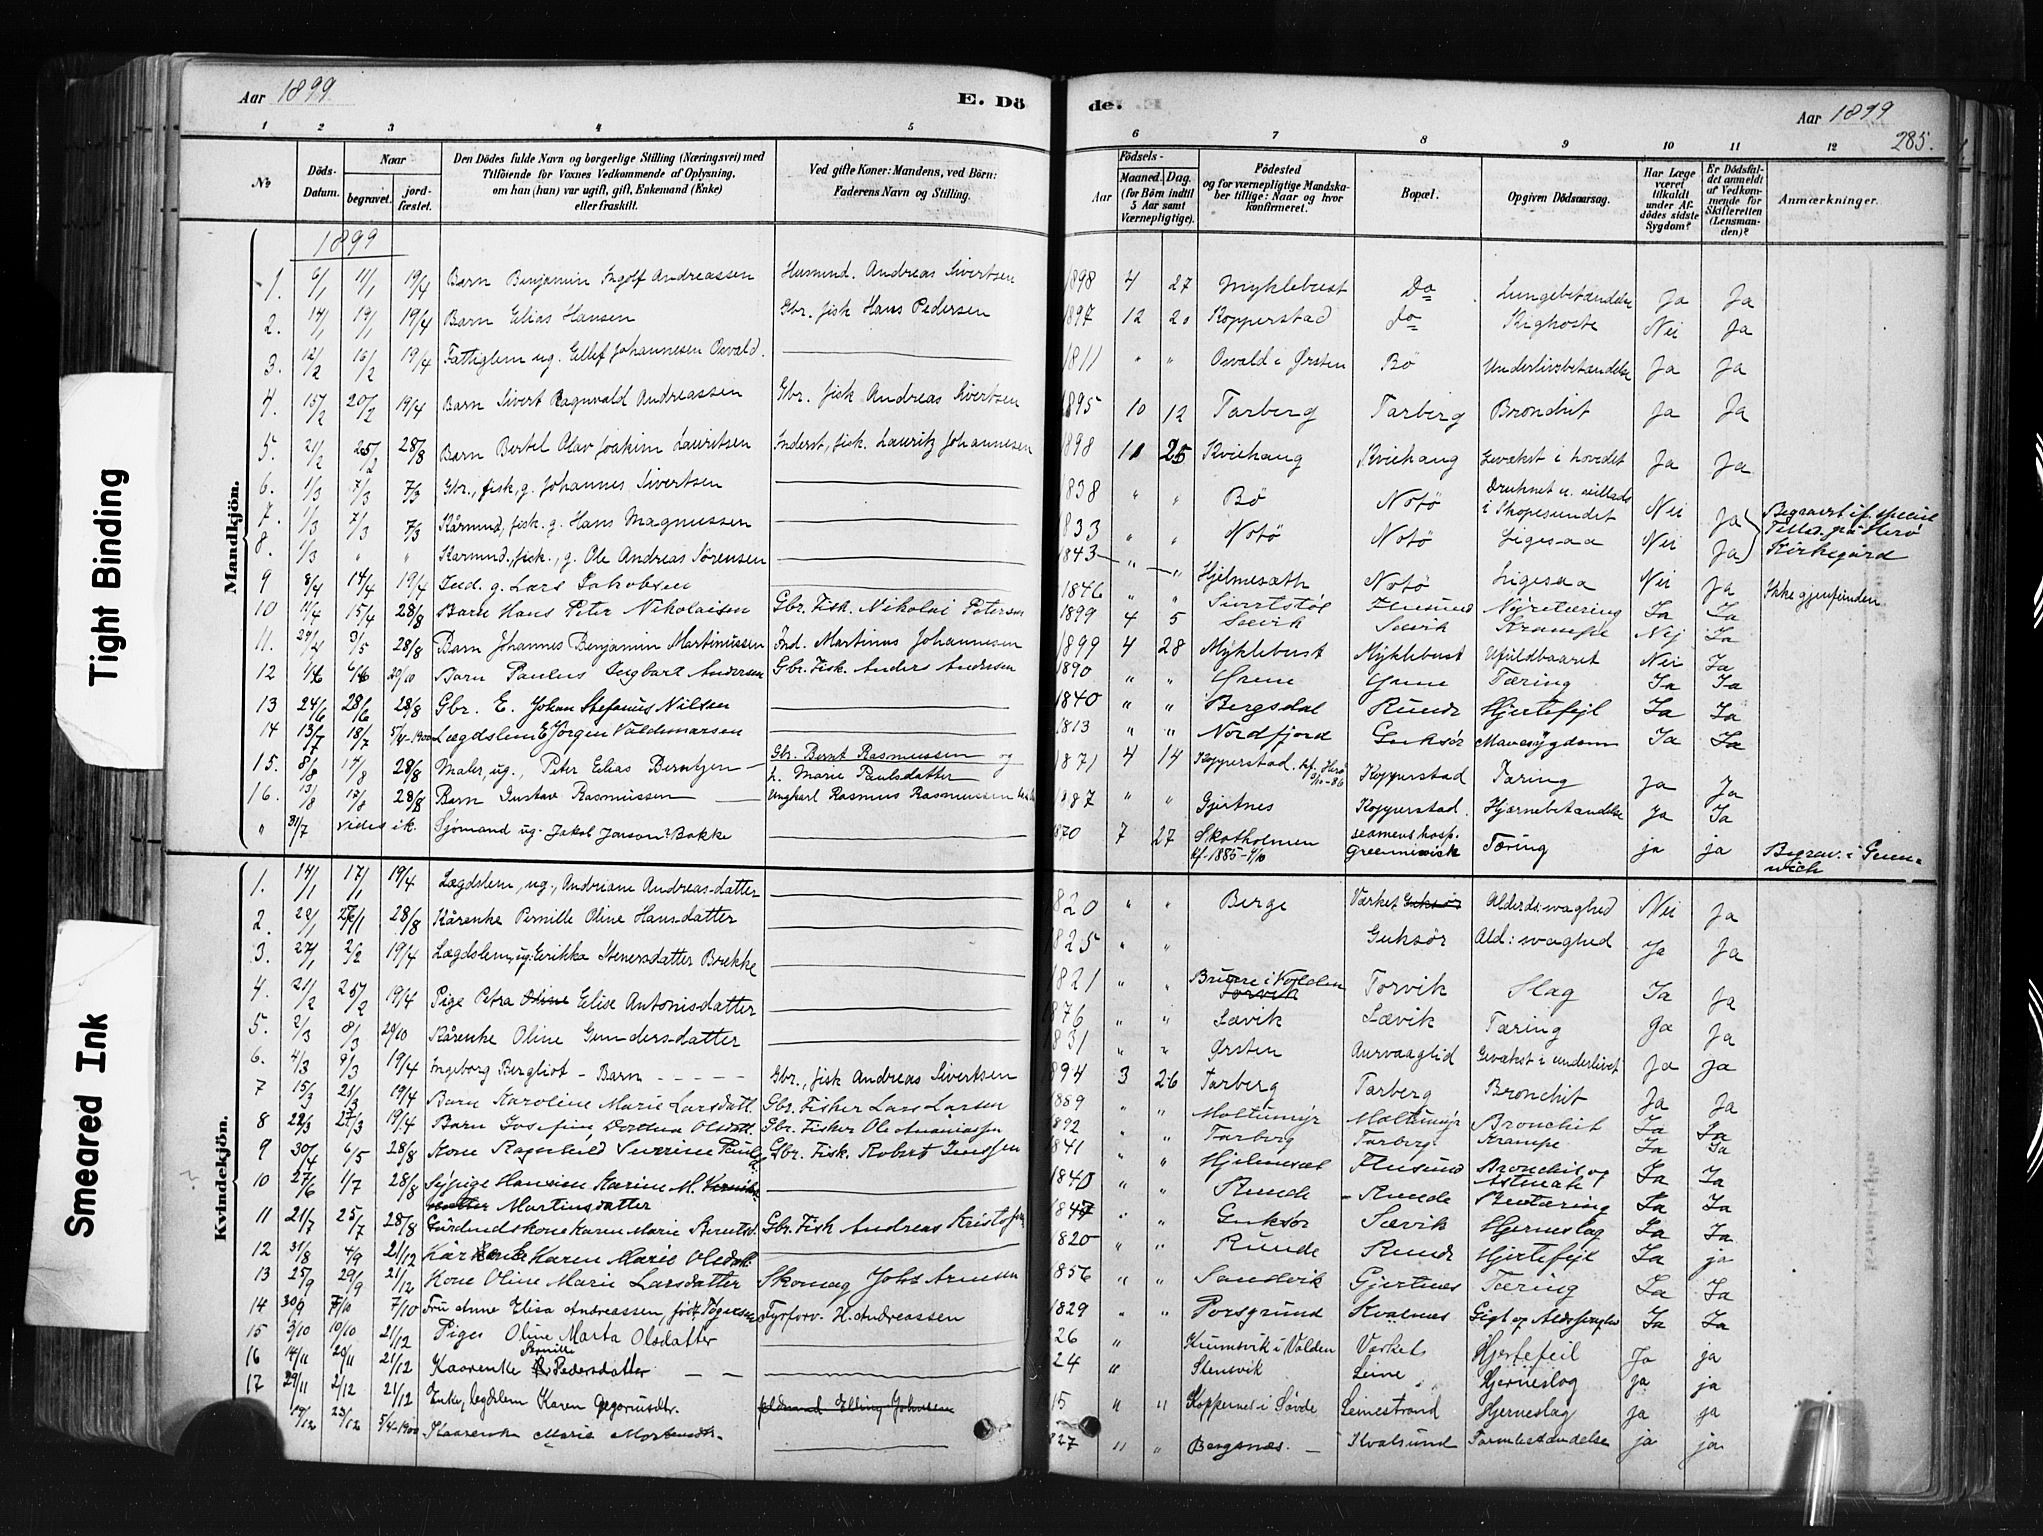 Aar 1899
E. Dö
de.
Aar 1899
285.
1 2 3 4 5
6 7 8 9 10 11 12
No
Döds-Datum.
Naar
begravet.
jord-fæstet.
Den Dödes fulde Navn og borgerlige Stilling (Næringsvei) med
Tilföiende for Voxnes Vedkommende af Oplysning,
om han (hun) var ugift, gift, Enkemand (Enke)
eller fraskilt.
Ved gifte Koner: Mandens, ved Börn:
Faderens Navn og Stilling.
Födsels-
Aar
Maaned. Dag.
(for Börn indtil
5 Aar samt
Værnepligtige).
Födested
og for værnepligtige Mandska-
ber tillige: Naar og hvor
konfirmeret.
Bopæl.
Opgiven Dödsaarsag.
Har Læge
været
tilkaldt
under Af-
dödes sidste
Sygdom?
Er Dödsfal-
det anmeldt
af Vedkom-
mende for
Skifteretten
(Lensman-
den)?
Anmærkninger.
Mandkjön.
1899
1. 6/1 11/1 19/4 Barn Benjamin Ingolf Andreassen Husmnd. Andreas Sivertsen 1898 4 27 Myklebust Do Lungebetændelse Ja Ja
2. 14/1 19/1 19/4 Barn Elias Hansen Gbr. fisk Hans Pedersen 1897 12 20 Kopperstad do Kighoste Nei Ja
3. 12/2 15/2 19/4 Fattiglem ug. Ellef Johannesen Osvald. 1811 " " Osvald i Ørsten Bö Underlivsbetændelse Ja Ja
4. 15/2 20/2 19/4 Barn Sivert Ragnvald Andreassen Gbr. fisk Andreas Sivertsen 1895 10 12 Tarberg Tarberg Bronchit Ja Ja
5. 21/2 25/2 28/8 Barn Bertel Olav Joakim Lauritsen Inderst, fisk. Lauritz Johannesen 1898 11 25 Kviehaug Kviehaug Gevækst i hovedet Ja Ja
6. 1/3 7/3 7/3 Gbr., fisk, g. Johannes Sivertsen 1838 " " Bö Notö Druknet u. seillads i Skopesundet Nei Ja
7. 1/3 7/3 7/3 Kårmnd, fisk. g. Hans Magnussen 1833 " " Notö Notö Ligesaa Nei Ja Begravet if. speciel Tillad. på Herö Kirkegård
8. 1/3 " " Karmnd., fisk., g. Ole Andreas Sörensen 1843 " " Hjelmesæth Notö Ligesaa Nei Ja Ikke gjenfunden
9 8/4 14/4 19/4 Ind. g. Lars Jakobsen 1846 " " Sivertstöl Flusund Nyretæring Ja Ja
10 11/4 15/4 28/8 Barn Hans Peter Nikolaisen Gbr. Fisk. Nikolai Petersen 1899 4 5 Sævik Sævik Krampe Nej Ja
11. 29/4 3/5 28/8 Barn Johannes Benjamin Martinussen Ind. Martinus Johannesen 1899 4 28 Myklebust Myklebust Ufuldbaaret Nei Ja
12 1/6 6/6 29/10 Barn Paulus Ingbart Andersen Gbr. Fisk. Anders Andersen 1890 " " Tæring Ja Ja
13 24/6 28/6 28/8 Gbr. E. Johan Stefanus Nilsen 1840 " " Bergsdal Runde Hjertefejl Ja Ja
14 13/7 18/7 5/4-1900 Lægdslem E Jörgen Valdemarsen 1813 " " Nordfjord Guksör Mavesygdom Ja Ja
15. 8/8 14/8 28/8 Maler, ug., Peter Elias Berntzen Gbr. Bernt Rasmussen og h. Marie Paulsdatter 1871 4 14 Kopperstad. kf. Herö Kopperstad Tæring Ja Ja
16. 13/8 17/8 28/8 Barn Gustav Rasmussen Ungkarl Rasmus Rasmussen 1887 " " Gjertnes Kopperstad. Hjærnebetændelse Ja Ja
" 31/7 Sjömand ug. Jakob Bakke 1870 7 27 Skotholmen kf. 1885-4/10 seamens hosp. Greenniwisk Tæring ja ja Begrav. i Grien-wich
Kvindekjön.
1. 14/1 17/1 19/4 Lægdslem, ug., Andriane Andreas-datter 1820 " " Berge Værket Alderds:svaghed Nei Ja
2. 22/1 28/8 Kårenke Pernille Oline Hansdatter 1825 " " Guksör Ald: svaghed Ja Ja
3. 27/1 2/2 19/4 Lægdslem, ug: Erikka Stenersdatter Brekke 1821 " " i Volden Torvik Torvik Slag Ja Ja
4. 21/2 25/2 19/4 Pige Petra Oline Elise Antonisdatter 1876 " " Sævik Sævik Tæring Ja Ja
5. 2/3 8/3 29/10 Kårenke Oline Gundersdatter 1831 " " Ørsten Aurvaaglid Gevækst i underlivet Ja Ja
6. 4/3 9/3 19/4 Ingeborg Bergliot - Barn Gbr., fisk Andreas Sivertsen 1894 3 26 Tarberg Tarberg Bronchit Ja Ja
7 15/3 21/3 19/4 Barn Karoline Marie Larsdatt. Gbr. Fisher Lars Larsen 1889 " " Moltumyr Moltumyr Bronchit Ja Ja
8 22/3 27/3 19/4 Barn Josefine Dorthea Olsdatt. Gbr. Fisker Ole Ananiassen 1892 " " Tarberg Tarberg Krampe Ja Ja
9 30/4 6/5 28/8 Kone Ragnhild Severine Pauls Gbr. Fisk. Robert Jensen 1841 " " Hjelmesæt Flusund Bronchit og Astmah Ja Ja
10 27/6 1/7 28/8 Sypige Hansine Karine M. Martinsdatter 1840 " " Runde Runde Ja Ja
11 21/7 25/7 28/8 Gårdmdskone Karen Marie Berntsd. Gbr. Fisk Andreas Kristofs 1847 " " Guksör Sævik Hjerneslag Ja Ja
12 31/8 4/9 21/12 Kårenke Karen Marie Olsdatt. 1820 " " Runde Runde Hjertefejl Ja ja
13 25/9 29/9 21/12 Kone Oline Marie Larsdatter Skomag Johs Arnesen 1856 " " Sandvik Gjertnes Tæring Ja Ja
14 30/9 7/10 7/10 Fru Anne Elisa Andreassen, född Tögersen Fyrforv. H. Andreassen 1829 " " Porsgrund Kvalnes Gigt og Ja Ja
15 3/10 10/10 21/12 Piges Oline Marta Olsdatter 26 Krumsvik i Volden Værket Hjertefeil Ja ja
16 14/11 20/11 21/12 Kaarenke Pernille Pedersdatter 24 " Stensvik Leine Hjerneslag ja ja
17 29/11 2/12 21/12 Enke, legdslem Karen Gregoriusdtr. 15 " " Koppernes i Sövde Leinestrand Hjerneslag ja ja
19/12 23/12 5/4-1900 Kaarenke Marie Mortensdtr. 827 " " Bergsnes. Kvalsund Tarmbetændelse ja ja
Tight Binding
Smeared Ink